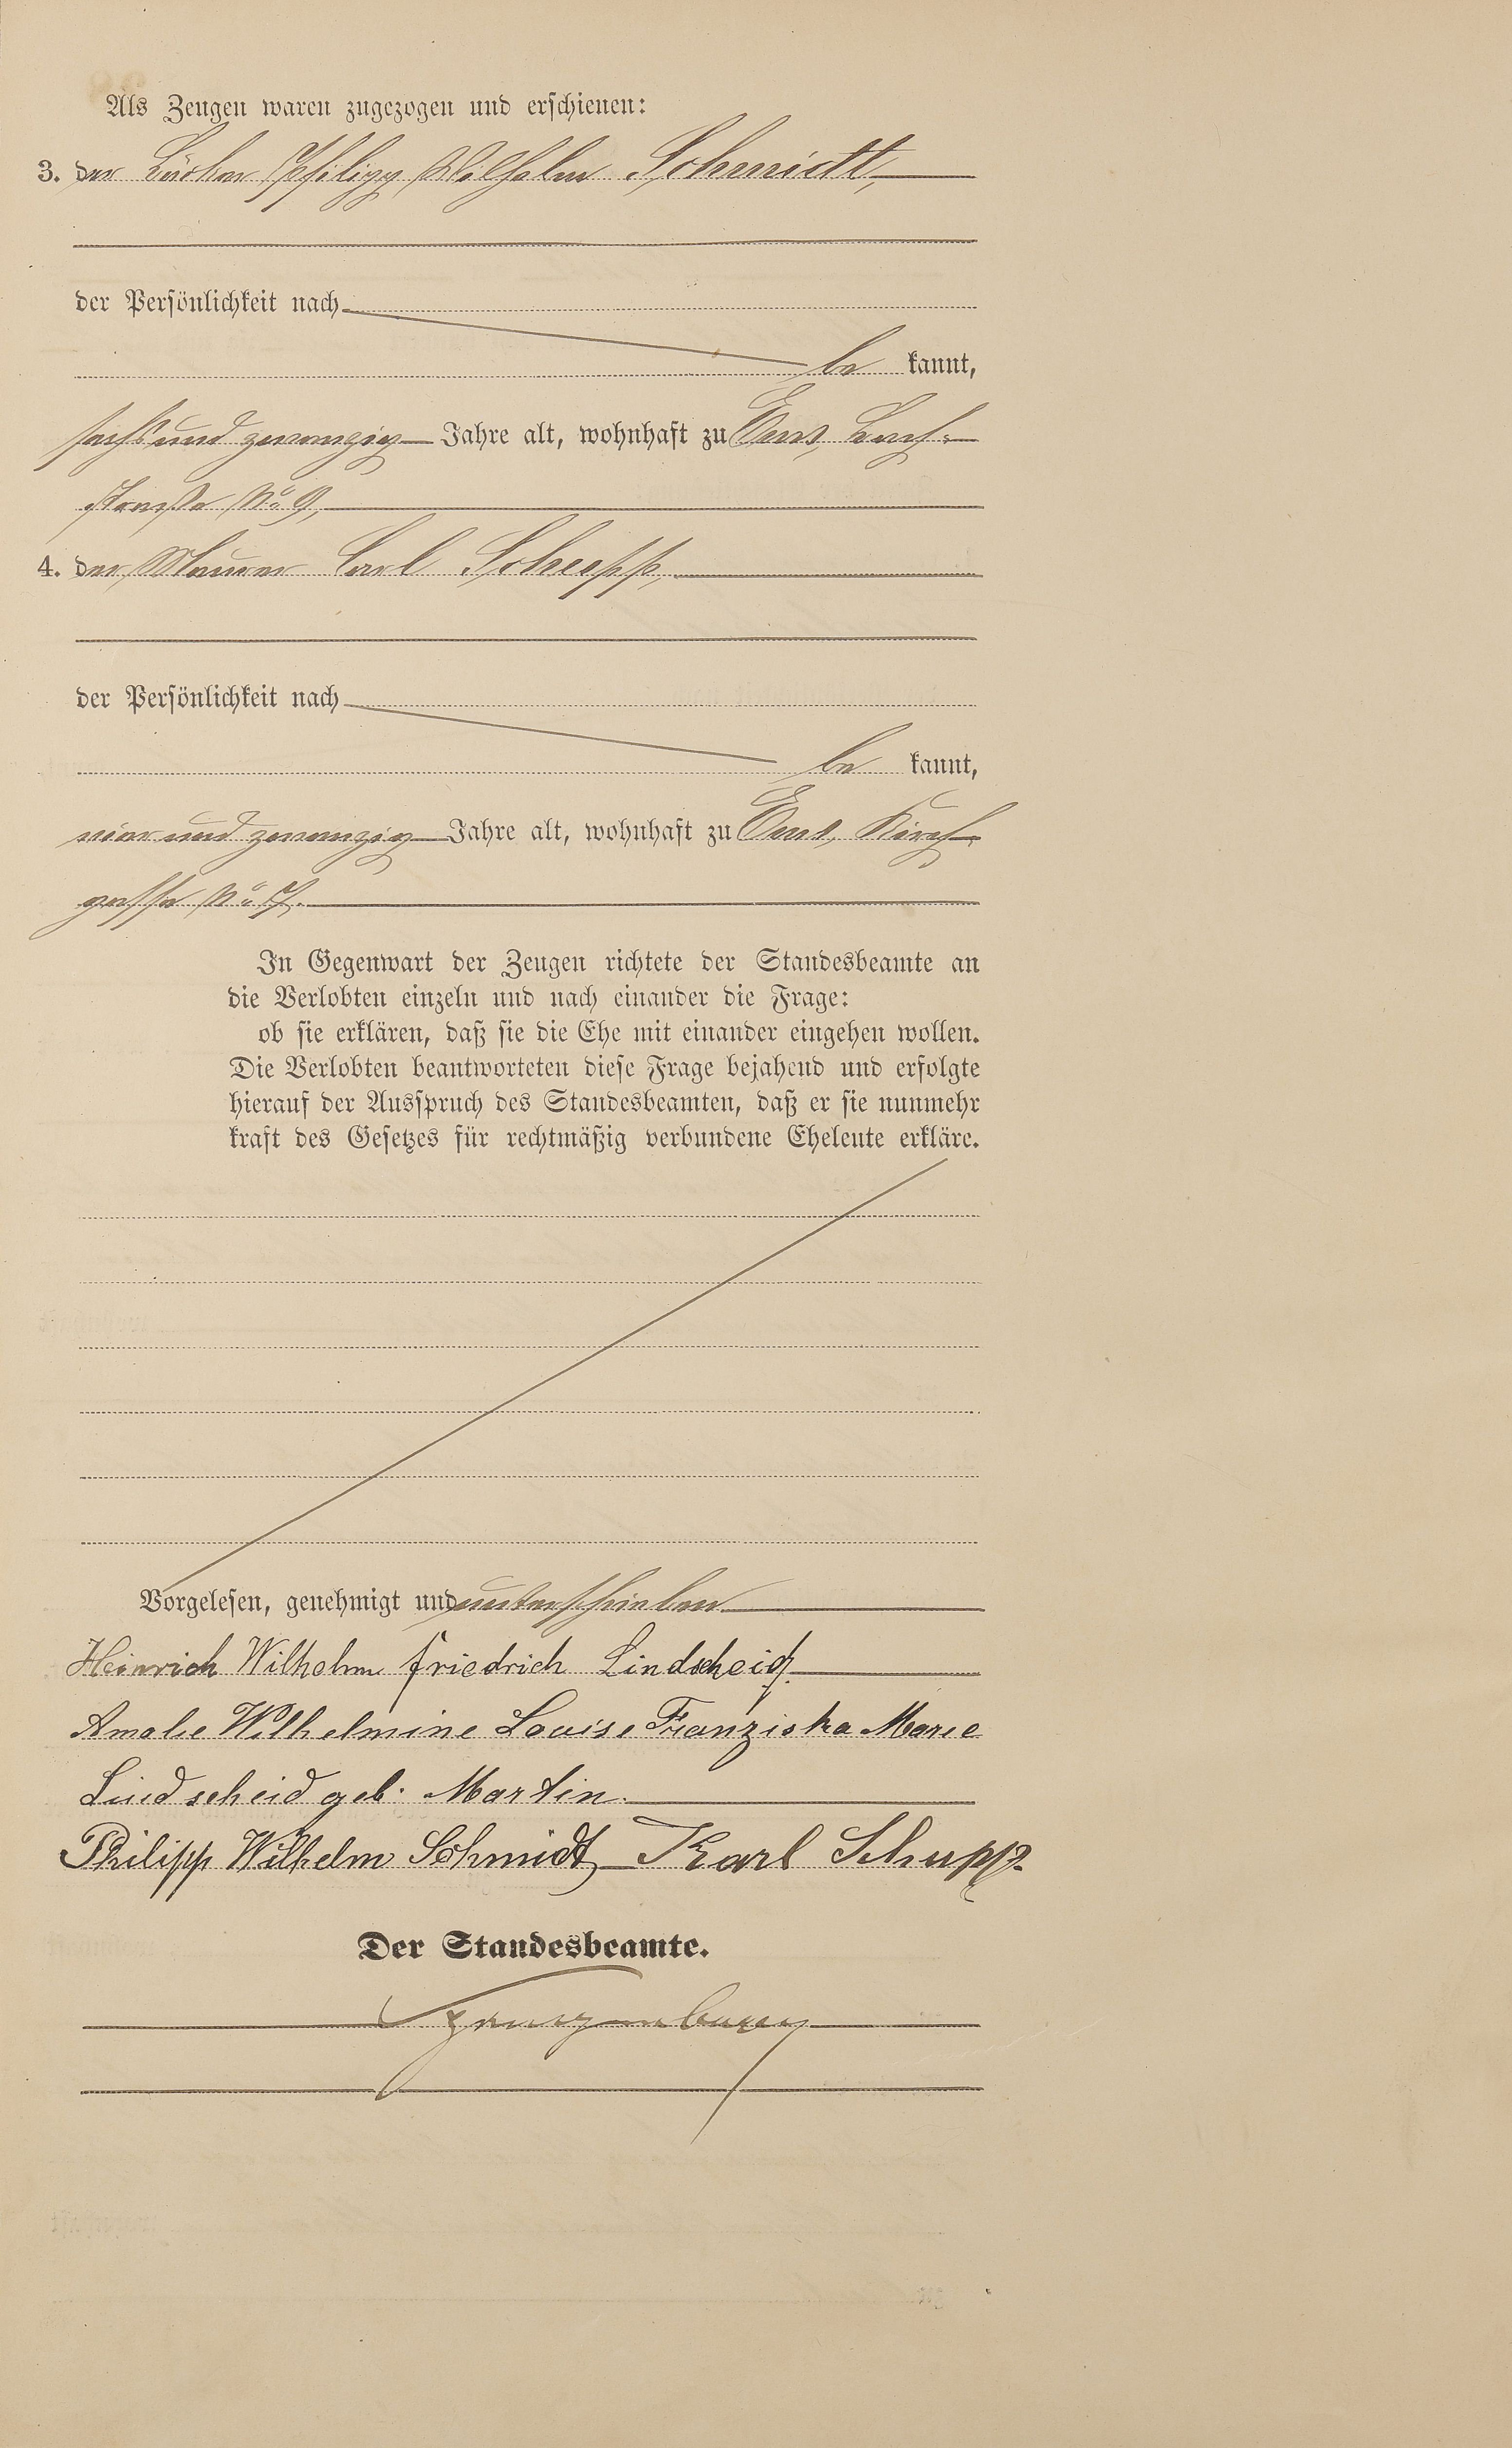 Als Zeugen waren zugezogen und erschienen:
3. der Bäcker Philipp Wilhelm Schmidt,
der Persönlichkeit nach
be kannt,
sechs und zwanzig Jahre alt, wohnhaft zu Ems, Bach-
straße No 9,
4. der Maurer Carl Schupp,
der Persönlichkeit nach
be kannt,
vier und zwanzig Jahre alt, wohnhaft zu Ems, Kirch-
gasse No
In Gegenwart der Zeugen richtete der Standesbeamte an
die Verlobten einzeln und nach einander die Frage:
ob sie erklären, daß sie die Ehe mit einander eingehen wollen.
Die Verlobten beantworteten diese Frage bejahend und erfolgte
hierauf der Ausspruch des Standesbeamten, daß er sie nunmehr
kraft des Gesetzes für rechtmäßig verbundene Eheleute erkläre.
Vorgelesen, genehmigt und unterschrieben
Heinrich Wilhelm Friedrich Lindscheid.
Amalie Wilhelmine Louise Franziska Marie
Lindscheid geb. Martin.
Philipp Wilhelm Schmidt Karl Schupp.
Der Standesbeamte.